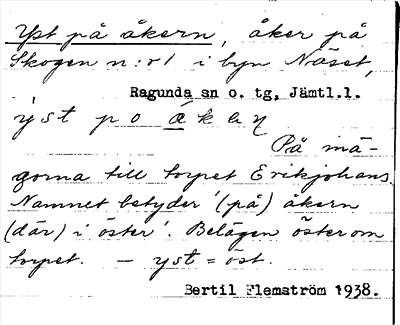 Yst på åkern, åker på
Skogen n:r 1 i byn Näset,
Ragunda sn o. tg, Jämtl.l.
ýst p o ákaɳ
På mä-
gorna till torpet Erikjohans.
Namnet betyder '(på) åkern
(där) i öster'. Belägen österom
torpet. – yst = öst.
Bertil Flemström 1938.